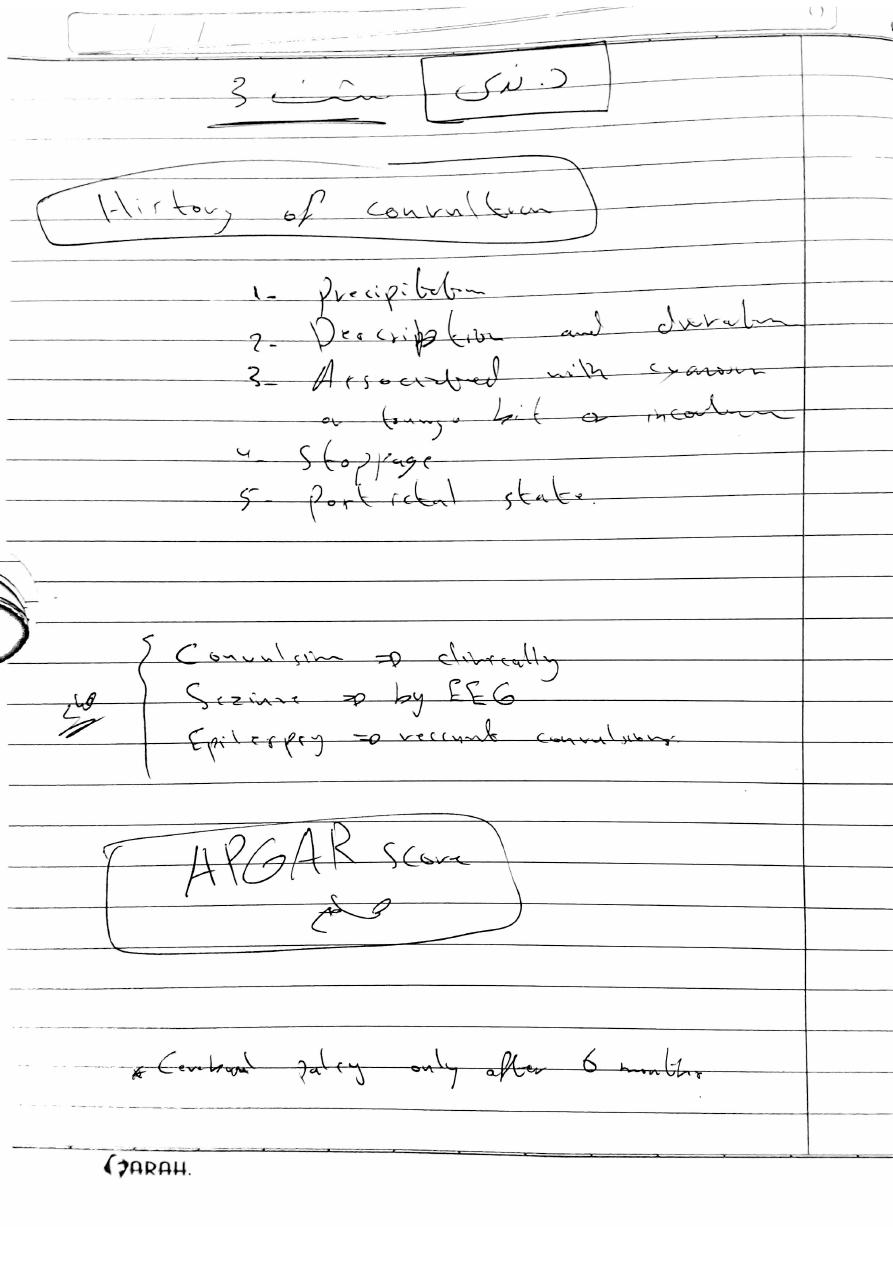 د. ندى
3
History of convultion
1- Precipitation
2- Description and duration
3- Associated with cyanosis
or tounge bit or incontinence
4- Stoppage
5- Post ictal state.
Convulsion ⇒ clinically
Seziure ⇒ by EEG
Epilepsy ⇒ reccunt convulsions.
APGAR score
* Cerebral palsy only after 6 months.
SARAH.